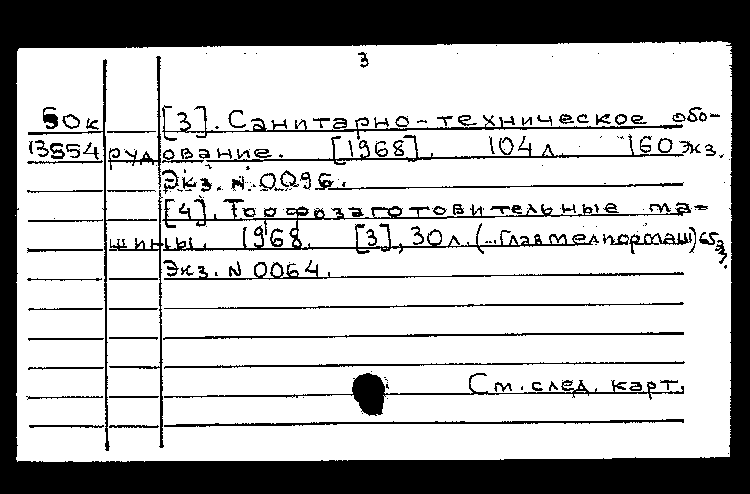 3
50к [3]. Санитарно-техническое обо-
13554 рудование. [1968]. 104 л. 160 экз.
Экз. N 0096.
[4]. Торфозаготовительные ма-
шины. 1968. [3], 30 л. (...Главмелпормаш) 65 экз.
Экз. N 0064.
См. след. карт.